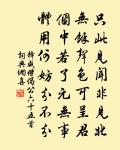 只此見聞非見聞
無餘聲色可呈君
個中若了元無事
體用何妨分不分
轉威德偈公六十五首
詞典網喜